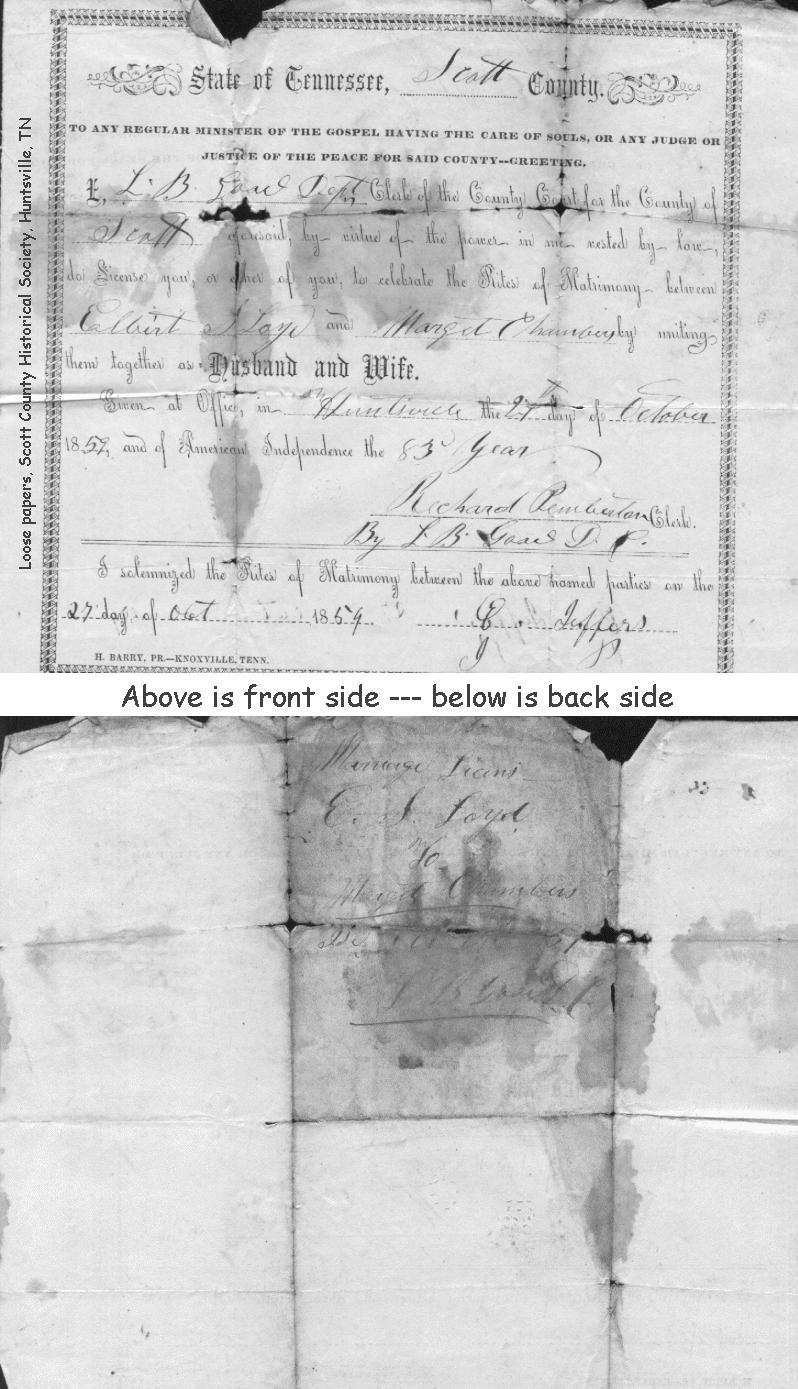 Loose papers, Scott County Historical Society, Huntsville, TN
State of Tennessee, Scott County.
TO ANY REGULAR MINISTER OF THE GOSPEL HAVING THE CARE OF SOULS, OR ANY JUDGE OR
JUSTICE OF THE PEACE FOR SAID COUNTY--GREETING.
I, L. B. Dept Clerk of the County Court for the County of
Scott aforesaid, by virtue of the power in me vested by law,
do License you, or either of you, to celebrate the Rites of Matrimony between
Elbert S Loyd and Marget Chambers by uniting
them together as Husband and Wife.
Given at Office, in Huntsville the 27th day of October
1859, and of American Independence the 83d Year
Richard Pemberton Clerk.
By L. B. D. C.
I solemnized the Rites of Matrimony between the above named parties on the
27 day of Oct 1859 E. Jeffers
J P
H. BARRY, PR.—KNOXVILLE, TENN.
Above is front side --- below is back side
Marriage Licens
E. S. Loyd
To
Marget Chambers
L B